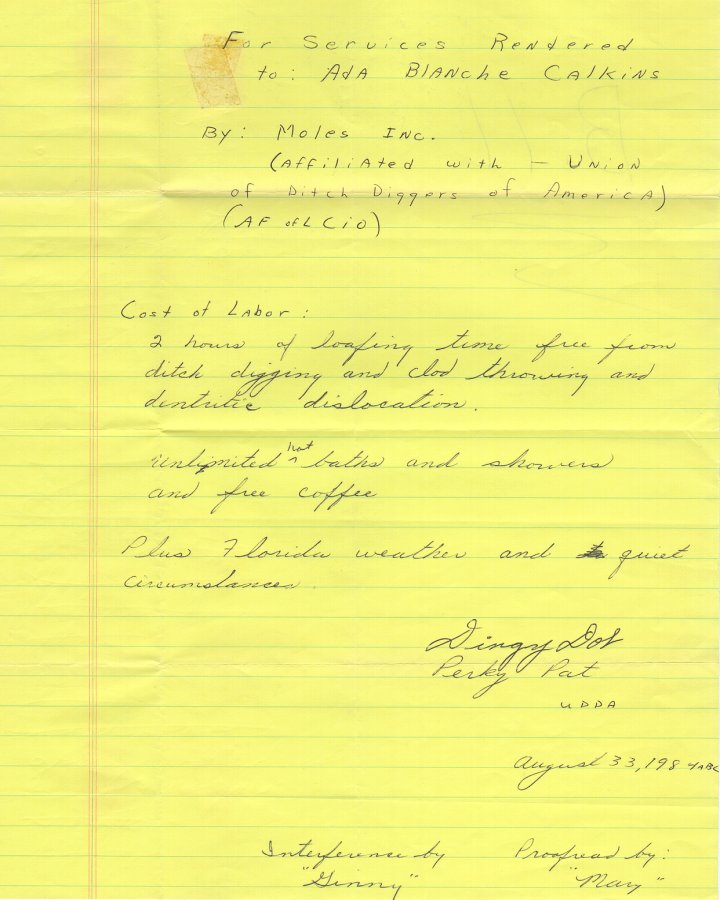 For Services Rendered
to: Ada Blanche Calkins
By: Moles Inc.
(Affiliated with – Union
of Ditch Diggers of America)
(AF of L CiO)
Cost of Labor:
2 hours of loafing time free from
ditch digging and clod throwing and
dentritic dislocation.
Unlimited hot baths and showers
and free coffee
Plus Florida weather and quiet
circumstances.
Dingy Dot
Perky Pat
UDDA
August 33, 198
Interference by
"Ginny"
Proofread by:
"Mary"